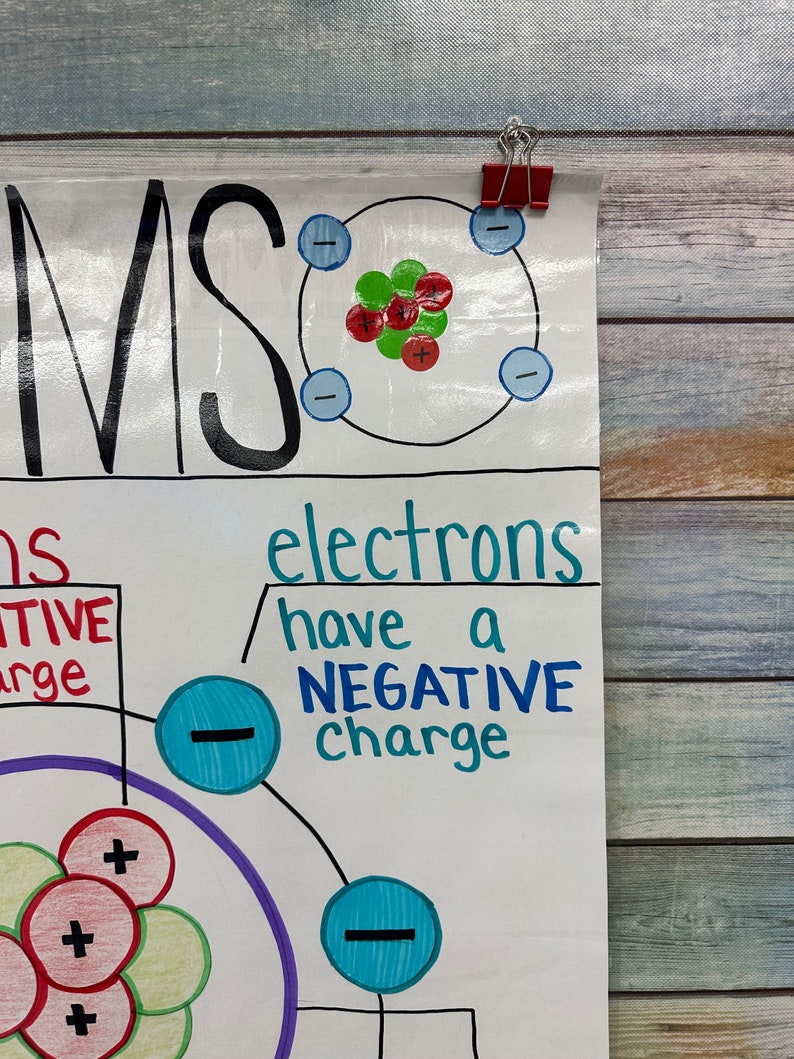 MS
electrons
have a
NEGATIVE
charge
ns
ITIVE
arge